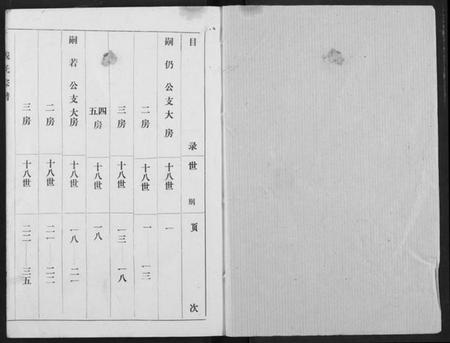 目录 世别 页次
嗣仍公支大房 十八世 一
二房 十八世 一 一三
三房 十八世 一三 一八
四五房 十八世 一八
嗣若公支大房 十八世 一八 二一
二房 十八世 二一 二二
三房 十八世 二二 三五